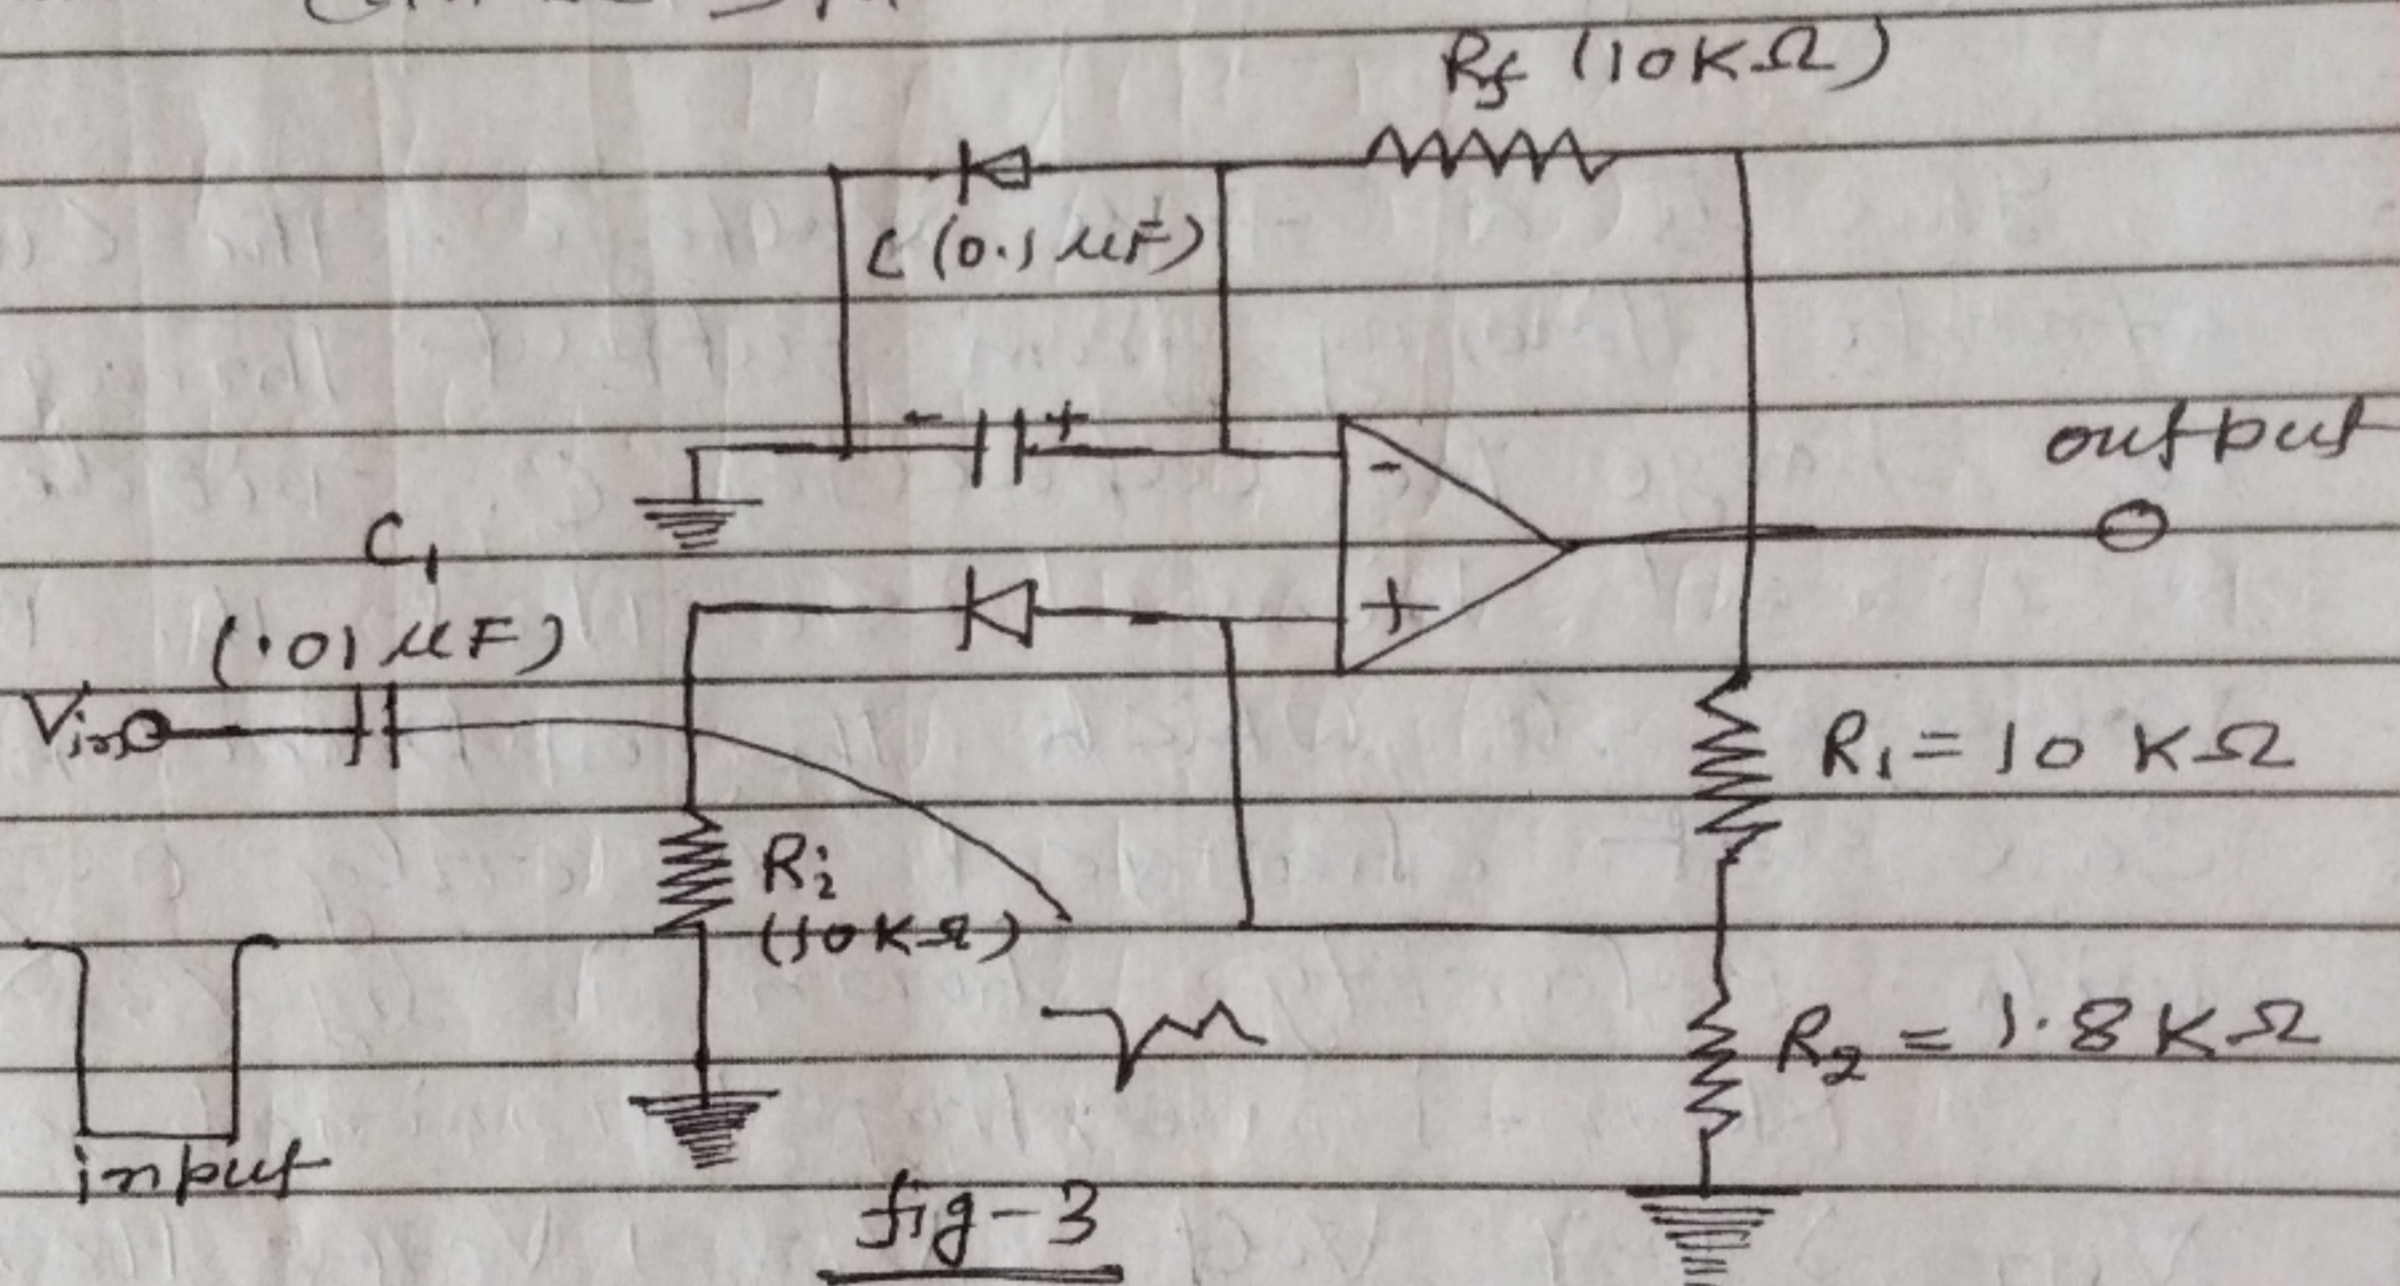 Rf (10KΩ)
C (0.1 μF)
- +
output
-
C1
+
(.01 μF)
Vin
R1 = 10 KΩ
Ri
(10KΩ)
R2 = 1.8 KΩ
input
fig-3